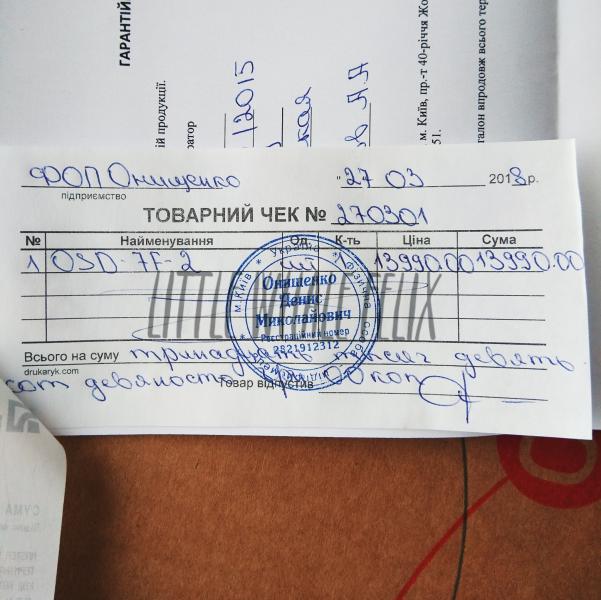 ГАРАНТІЙ
ій продукції.
ратор
/2015
кая
м. Київ, пр-т 40-річчя Жо
51.
талон впродовж всього тер
ФОП Онищенко "27 03 2018р.
підприємство
ТОВАРНИЙ ЧЕК № 270301
№ Найменування Од. К-ть Ціна Сума
1 OSD-7F-2 шт 1 13990.00 13990.00
LITTLE WHITE FELIX
* Україна *
м. Київ
Фізична особа
підприємець
Онищенко
Денис
Миколайович
Реєстраційний номер
2821912312
Всього на суму тринадцять тисяч девять
drukaryk.com
сот девяносто 00 коп
Товар відпустив
СУМА